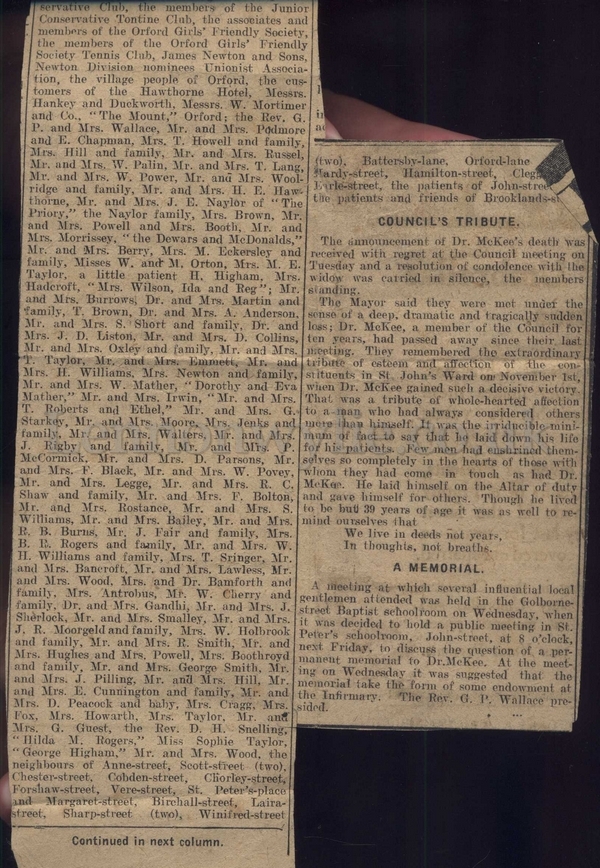 servative Club, the members of the Junior
Conservative Tontine Club, the associates and
members of the Orford Girls' Friendly Society,
the members of the Orford Girls' Friendly
Society Tennis Club, James Newton and Sons,
Newton Division nominees Unionist Associa-
tion, the village people of Orford, the cus-
tomers of the Hawthorne Hotel, Messrs.
Hankey and Duckworth, Messrs. W. Mortimer
and Co., "The Mount," Orford; the Rev. G.
P. and Mrs. Wallace, Mr. and Mrs. Podmore
and E. Chapman, Mrs. T. Howell and family,
Mrs. Hill and family, Mr. and Mrs. Russel,
Mr. and Mrs. W. Palin, Mr. and Mrs. T. Lang,
Mr. and Mrs. W. Power, Mr. and Mrs. Wool-
ridge and family, Mr. and Mrs. H. E. Haw-
thorne, Mr. and Mrs. J. E. Naylor of "The
Priory," the Naylor family, Mrs. Brown, Mr.
and Mrs. Powell and Mrs. Booth, Mr. and
Mrs. Morrissey, "the Dewars and McDonalds,"
Mr. and Mrs. Berry, Mrs. M. Eckersley and
family, Misses W. and M. Orton, Mrs. M. E.
Taylor, a little patient H. Higham, Mrs.
Hadcroft, "Mrs. Wilson, Ida and Reg"; Mr.
and Mrs. Burrows, Dr. and Mrs. Martin and
family, T. Brown, Dr. and Mrs. A. Anderson,
Mr. and Mrs. S. Short and family, Dr. and
Mrs. J. D. Liston, Mr. and Mrs. D. Collins,
Mr. and Mrs. Oxley and family, Mr. and Mrs.
T. Taylor, Mr. and Mrs. Emmett, Mr. and
Mrs. H. Williams, Mrs. Newton and family,
Mr. and Mrs. W. Mather, "Dorothy and Eva
Mather," Mr. and Mrs. Irwin, "Mr. and Mrs.
T. Roberts and Ethel," Mr. and Mrs. G.
Starkey, Mr. and Mrs. Moore, Mrs. Jenks and
family, Mr. and Mrs. Walters, Mr. and Mrs.
J. Rigby and family, Mr. and Mrs. P.
McCormick, Mr. and Mrs. D. Parsons, Mr.
and Mrs. F. Black, Mr. and Mrs. W. Povey,
Mr. and Mrs. Legge, Mr. and Mrs. R. C.
Shaw and family, Mr. and Mrs. F. Bolton,
Mr. and Mrs. Rostance, Mr. and Mrs. S.
Williams, Mr. and Mrs. Bailey, Mr. and Mrs.
R. B. Burns, Mr. J. Fair and family, Mrs.
B. R. Rogers and family, Mr. and Mrs. W.
H. Williams and family, Mrs. T. Sringer, Mr.
and Mrs. Bancroft, Mr. and Mrs. Lawless, Mr.
and Mrs. Wood, Mrs. and Dr. Bamforth and
family, Mrs. Antrobus, Mr. W. Cherry and
family, Dr. and Mrs. Gandhi, Mr. and Mrs. J.
Sherlock, Mr. and Mrs. Smalley, Mr. and Mrs.
J. R. Moorgeld and family, Mrs. W. Holbrook
and family, Mr. and Mrs. R. Smith, Mr. and
Mrs. Hughes and Mrs. Powell, Mrs. Boothroyd
and family, Mr. and Mrs. George Smith, Mr.
and Mrs. J. Pilling, Mr. and Mrs. Hill, Mr.
and Mrs. E. Cunnington and family, Mr. and
Mrs. D. Peacock and baby, Mrs. Cragg, Mrs.
Fox, Mrs. Howarth, Mrs. Taylor, Mr. and
Mrs. G. Guest, the Rev. D. H. Snelling,
"Hilda M. Rogers," Miss Sophie Taylor,
"George Higham," Mr. and Mrs. Wood, the
neighbours of Anne-street, Scott-street (two),
Chester-street, Cobden-street, Chorley-street,
Forshaw-street, Vere-street, St. Peter's-place
and Margaret-street, Birchall-street, Laira-
street, Sharp-street (two), Winifred-street
Continued in next column.
(two), Battersby-lane, Orford-lane
Hardy-street, Hamilton-street,
Earle-street, the patients of John-street
the patients and friends of Brooklands-st
COUNCIL'S TRIBUTE.
The announcement of Dr. McKee's death was
received with regret at the Council meeting on
Tuesday and a resolution of condolence with the
widow was carried in silence, the members
standing.
The Mayor said they were met under the
sense of a deep, dramatic and tragically sudden
loss; Dr. McKee, a member of the Council for
ten years, had passed away since their last
meeting. They remembered the extraordinary
tribute of esteem and affection of the con-
stituents in St. John's Ward on November 1st,
when Dr. McKee gained such a decisive victory.
That was a tribute of whole-hearted affection
to a man who had always considered others
more than himself. It was the irriducible mini-
mum of fact to say that he laid down his life
for his patients. Few men had enshrined them-
selves so completely in the hearts of those with
whom they had come in touch as had Dr.
McKee. He laid himself on the Altar of duty
and gave himself for others. Though he lived
to be but 39 years of age it was as well to re-
mind ourselves that
We live in deeds not years,
In thoughts, not breaths.
A MEMORIAL.
A meeting at which several influential local
gentlemen attended was held in the Golborne-
street Baptist schoolroom on Wednesday, when
it was decided to hold a public meeting in St.
Peter's schoolroom, John-street, at 8 o'clock,
next Friday, to discuss the question of a per-
manent memorial to Dr.McKee. At the meet-
ing on Wednesday it was suggested that the
memorial take the form of some endowment at
the Infirmary. The Rev. G. P. Wallace pre-
sided.